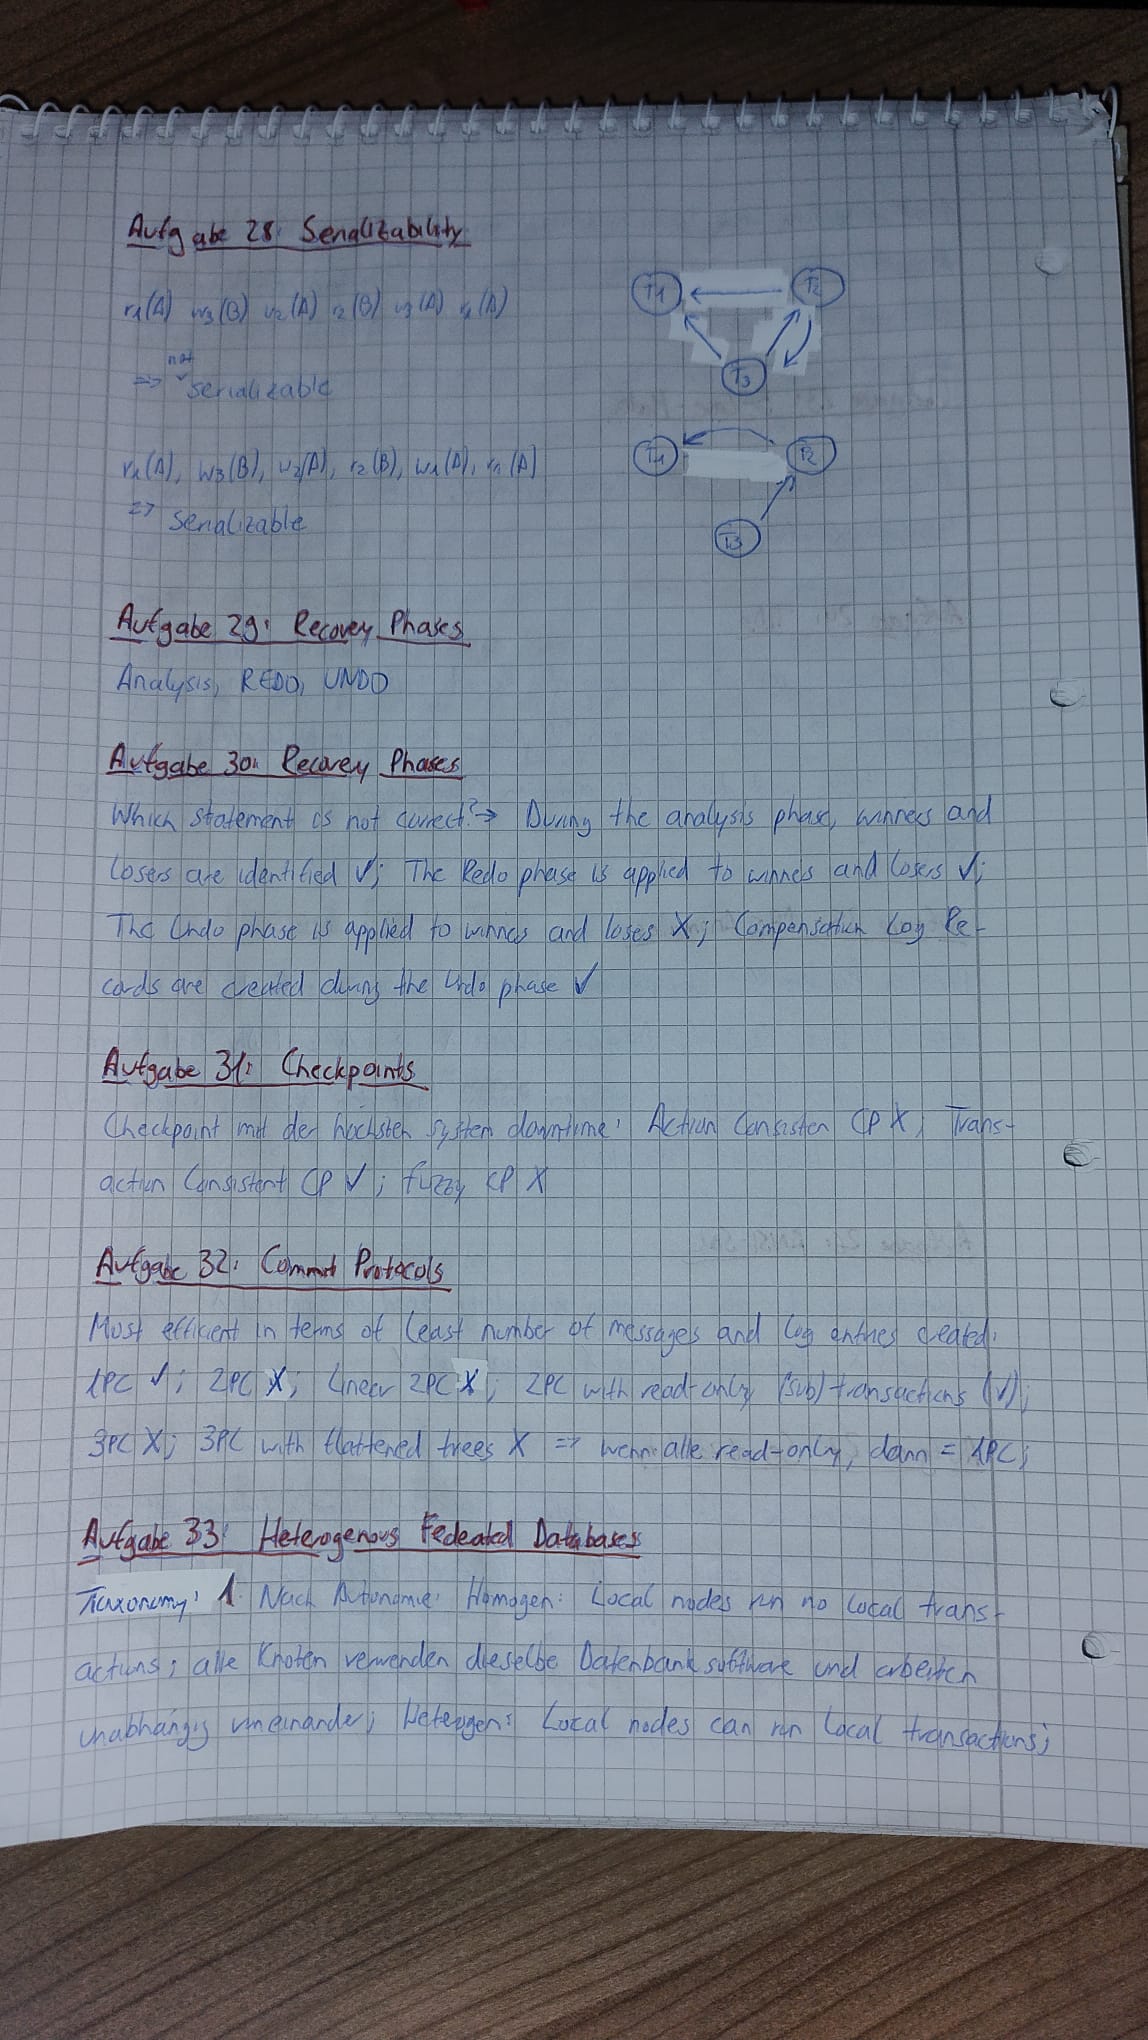 Aufgabe 28: Serializability
T1 T2
r1(A) w3(B) w2(A) r2(B) w3(A) r1(A)
not
=> serializable
T3
r1(A), w3(B), w2(A), r2(B), w1(A), r1(A)
T1 T2
=> Serializable
T3
Aufgabe 29: Recovery Phases
Analysis, REDO, UNDO
Aufgabe 30: Recovery Phases
Which statement is not correct? → During the analysis phase, winners and
losers are identified ✓; The Redo phase is applied to winners and losers ✓;
The Undo phase is applied to winners and losers X; Compensation Log Re-
cords are created during the Undo phase ✓
Aufgabe 31: Checkpoints
Checkpoint mit der höchsten system downtime: Action Consisten CP X; Trans-
action Consistent CP ✓; fuzzy CP X
Aufgabe 32: Commit Protocols
Most efficient in terms of least number of messages and log entries created:
1PC ✓; 2PC X; Linear 2PC X; 2PC with read-only (sub)transactions (✓);
3PC X; 3PC with flattened trees X => wenn alle read-only, dann = 1PC;
Aufgabe 33: Heterogenous Federated Databases
Taxonomy: 1. Nach Autonomie: Homogen: Local nodes run no local trans-
actions; alle Knoten verwenden dieselbe Datenbanksoftware und arbeiten
unabhängig voneinander; Heterogen: Local nodes can run local transactions;